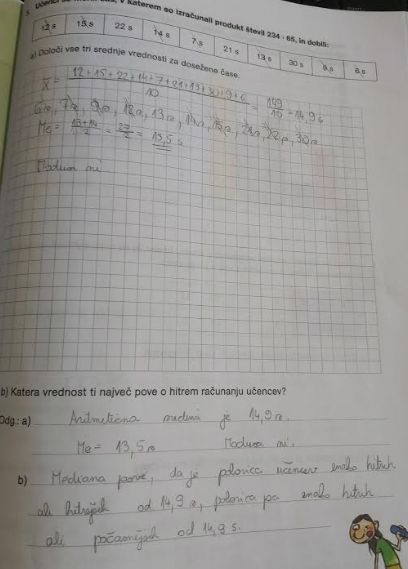 3. Učenci so , v katerem so izračunali produkt števil 234 · 65, in dobili:
12 s 15 s 22 s 14 s 7 s 21 s 13 s 30 s 9 s 6 s
a) Določi vse tri srednje vrednosti za dosežene čase.
x̄ = 12 + 15 + 22 + 14 + 7 + 21 + 13 + 30 + 9 + 6 / 10 = 149 / 10 = 14,9 s
6 s, 7 s, 9 s, 12 s, 13 s, 14 s, 15 s, 21 s, 22 s, 30 s
Me = 13 + 14 / 2 = 27 / 2 = 13,5 s
Modusa ni.
b) Katera vrednost ti največ pove o hitrem računanju učencev?
Odg.: a) Aritmetična sredina je 14,9 s.
Me = 13,5 s Modusa ni.
b) Mediana pove, da je polovica učencev enako hitrih
ali hitrejših od 14,9 s, polovica pa enako hitrih
ali počasnejših od 14,9 s.